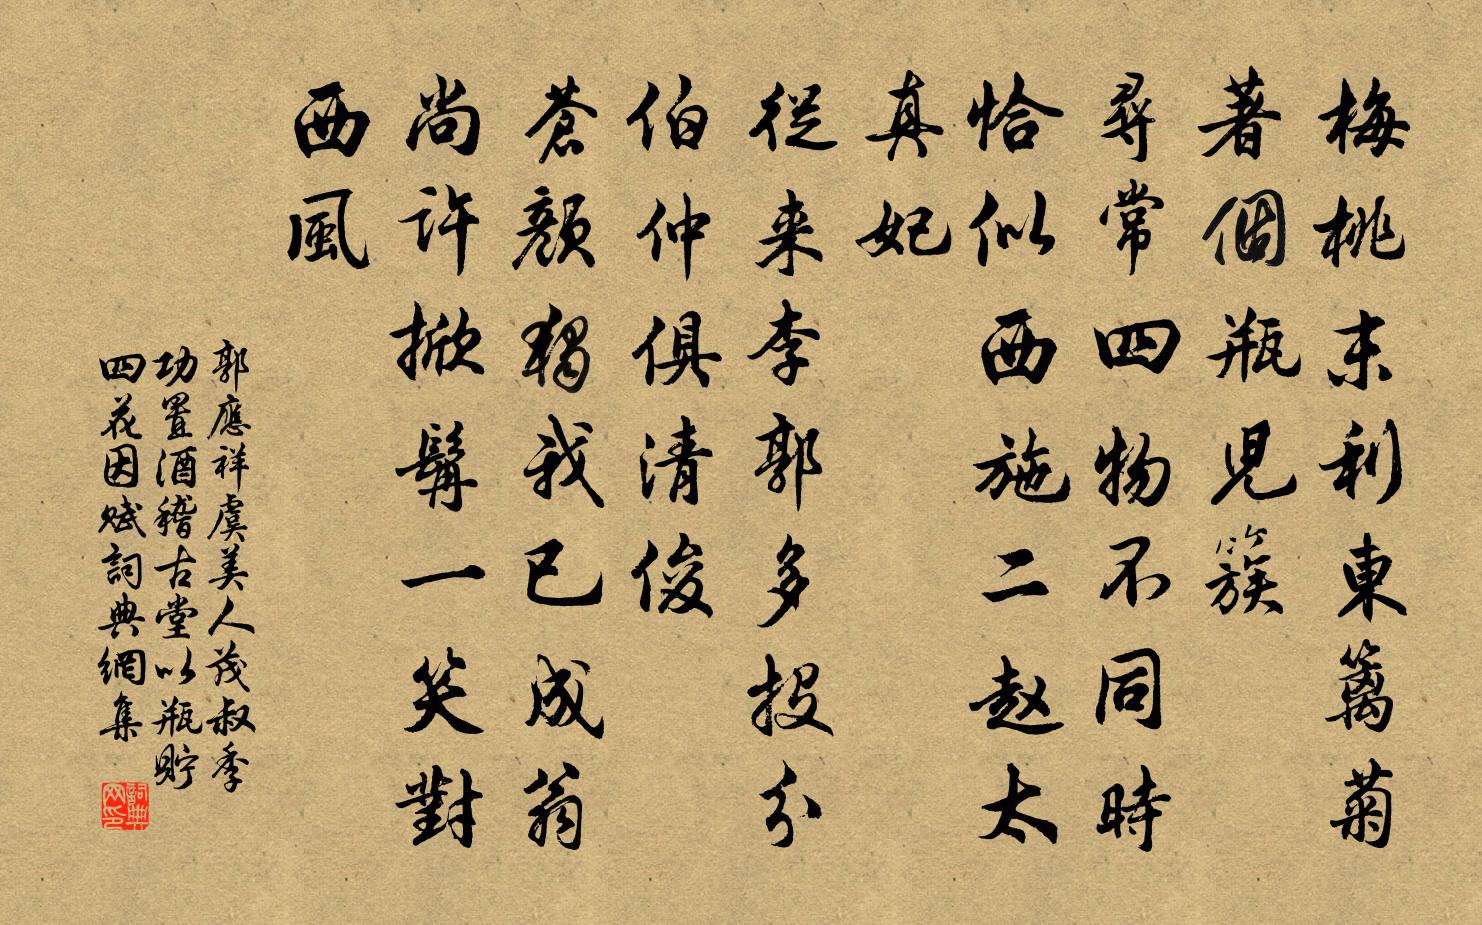 梅桃末利東籬菊
著個瓶兒簇
尋常四物不同時
恰似西施二赵太
真妃
從来李郭多投分
伯仲俱清俊
蒼顏獨我已成翁
尚許掀髯一笑對
西風
郭應祥虞美人茂叔季
功置酒稽古堂以瓶貯
四花因赋詞典網集
詞典网印